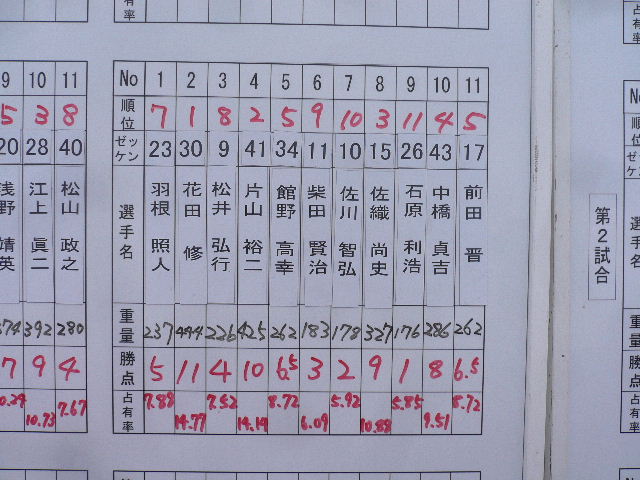 占有率
9 10 11
5 3 8
20 28 40
浅野 靖英 江上 眞二 松山 政之
374 392 280
7 9 4
10.24 10.73 7.67
No 1 2 3 4 5 6 7 8 9 10 11
順位 7 1 8 2 5 9 10 3 11 4 5
ゼッケン 23 30 9 41 34 11 10 15 26 43 17
選手名 羽根 照人 花田 修 松井 弘行 片山 裕二 館野 高幸 柴田 賢治 佐川 智弘 佐織 尚史 石原 利浩 中橋 貞吉 前田 晋
重量 237 444 226 425 262 183 178 327 176 286 262
勝点 5 11 4 10 6.5 3 2 9 1 8 6.5
占有率 7.89 14.77 7.52 14.14 8.72 6.09 5.92 10.88 5.85 9.51 8.72
第2試合
占有率
No
順位
ゼッケン
選手名
重量
勝点
占有率